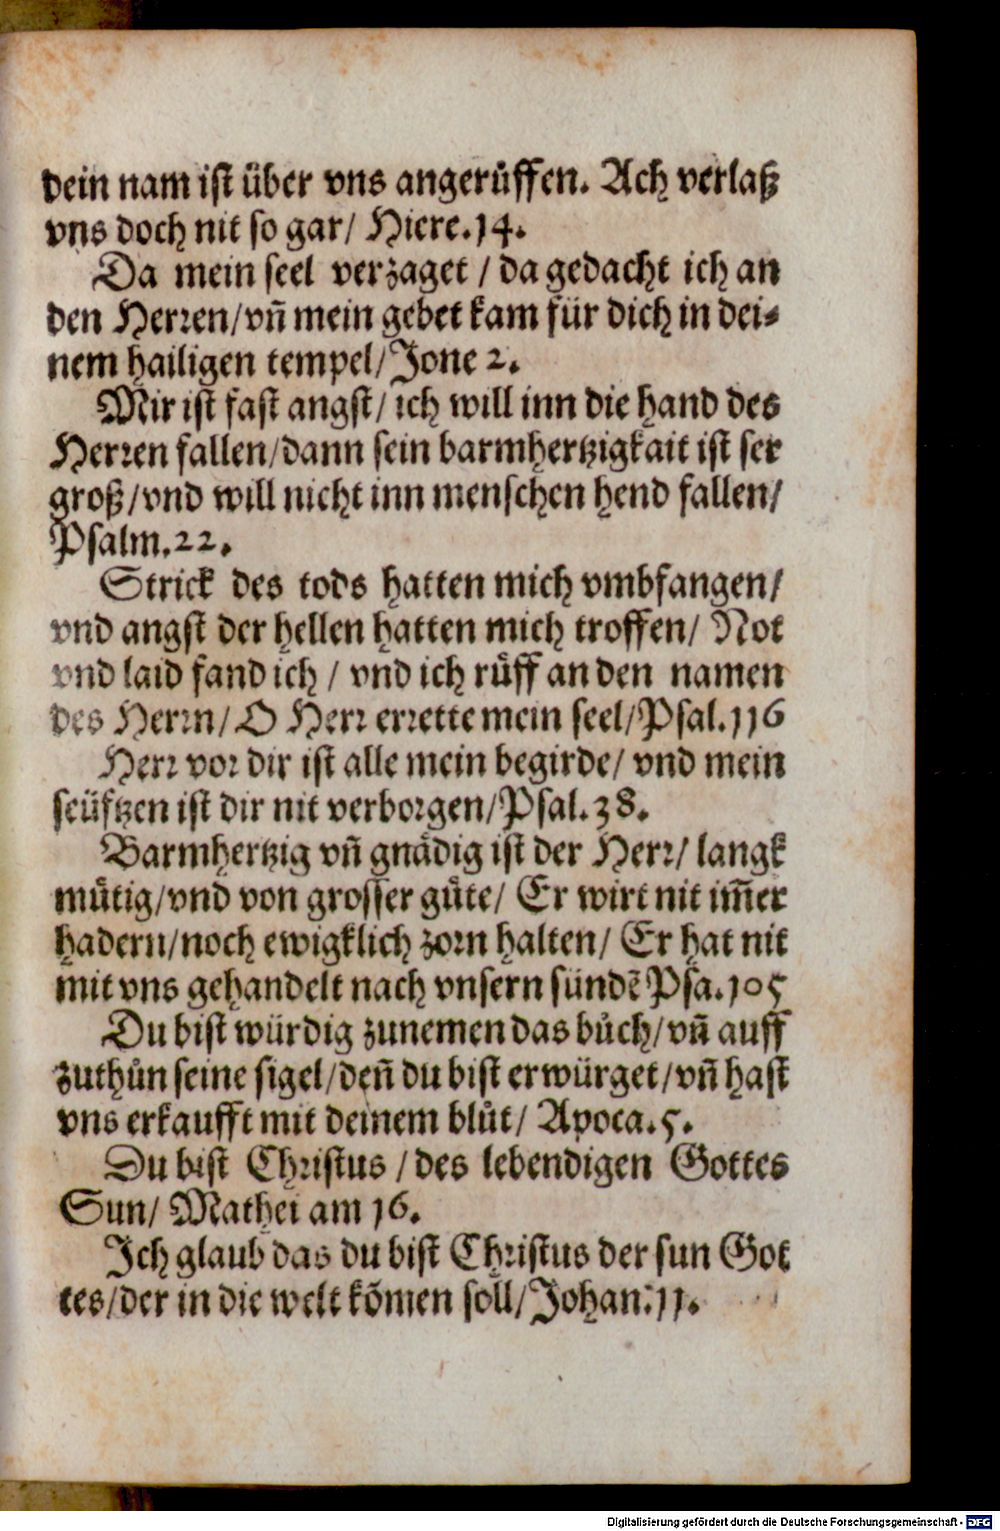 dein nam ist über vns angerüffen. Ach verlaß
vns doch nit so gar/ Hiere.14.
Da mein seel verzaget / da gedacht ich an
den Herren/vn̄ mein gebet kam für dich in dei⸗
nem hailigen tempel/Jone 2.
Mir ist fast angst/ ich will inn die hand des
Herren fallen/dann sein barmhertzigkait ist ser
groß/vnd will nicht inn menschen hend fallen/
Psalm.22.
Strick des tods hatten mich vmbfangen/
vnd angst der hellen hatten mich troffen/ Not
vnd laid fand ich / vnd ich růff an den namen
des Herrn/O Herr errette mein seel/Psal.116
Herr vor dir ist alle mein begirde/ vnd mein
seüftzen ist dir nit verborgen/Psal.38.
Barmhertzig vn̄ gnådig ist der Herr/ langk
můtig/vnd von grosser gůte/ Er wirt nit im̄er
hadern/noch ewigklich zorn halten/ Er hat nit
mit vns gehandelt nach vnsern sündē Psa.105
Du bist würdig zunemen das bůch/vn̄ auff
zuthůn seine sigel/den̄ du bist erwürget/vn̄ hast
vns erkaufft mit deinem blůt/ Apoca.5.
Du bist Christus /des lebendigen Gottes
Sun/ Mathei am 16.
Ich glaub das du bist Christus der sun Got
tes/der in die welt kōmen soll/Johan:11.
Digitalisierung gefördert durch die Deutsche Forschungsgemeinschaft - DFG